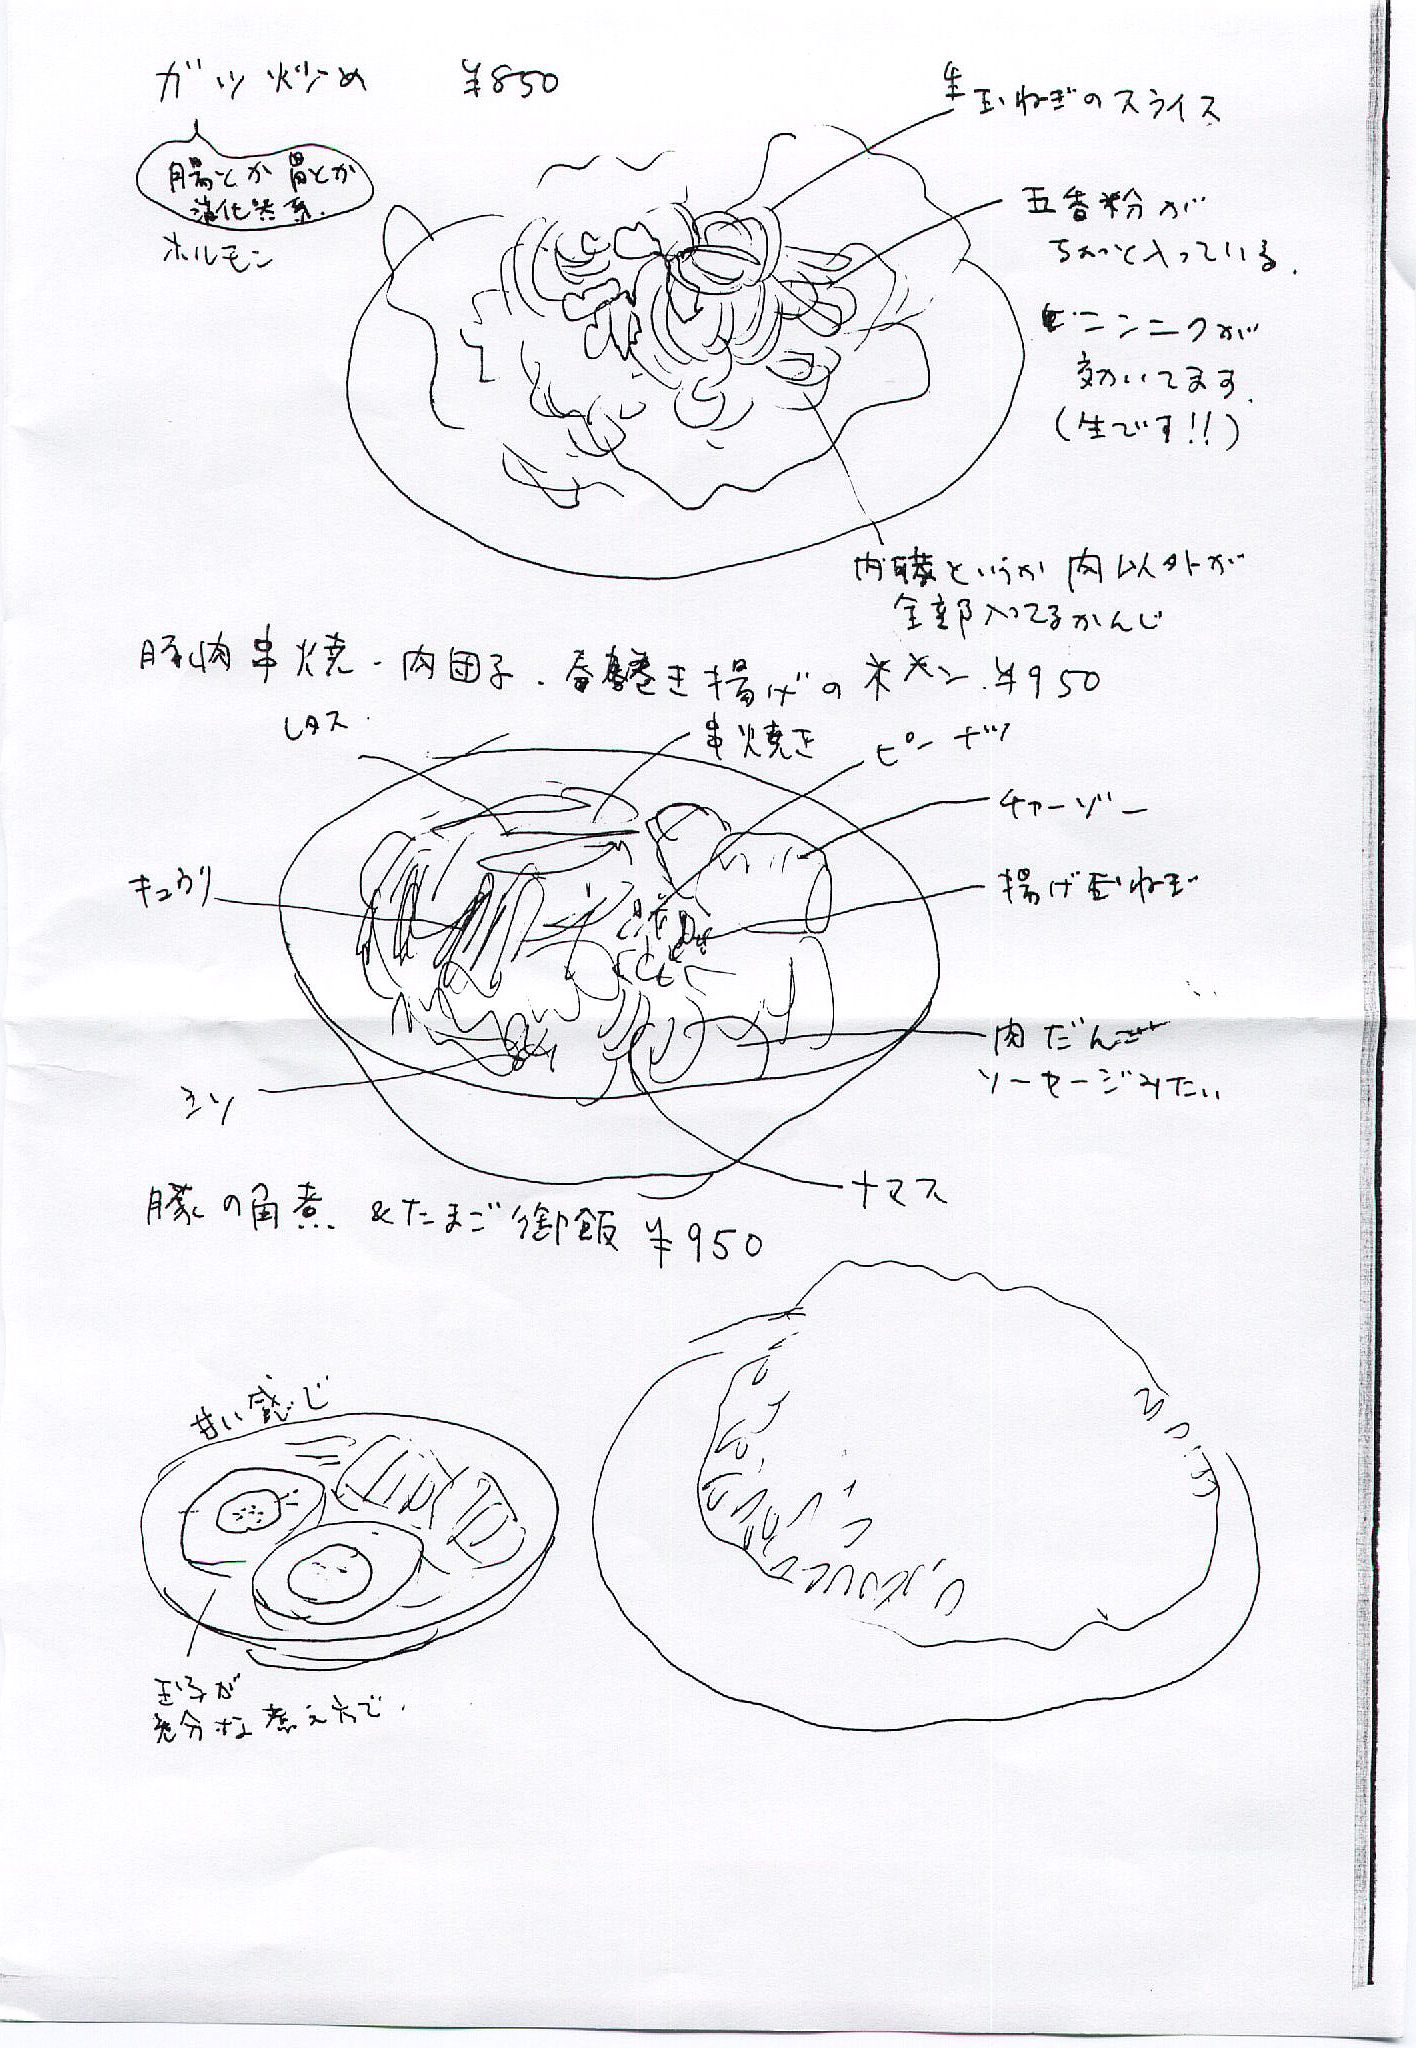 ガツ炒め ¥850
腸とか胃とか
消化器系.
ホルモン
生玉ねぎのスライス
五香粉が
ちょっと入っている.
ニンニクが
効いてます.
(生です!!)
内臓というか肉以外が
全部入ってるかんじ
豚肉串焼・肉団子・春巻き揚げの米メン.¥950
レタス.
串焼き
ピーナツ
チャーゾー
キュウリ
揚げ玉ねぎ
肉だんご
ソーセージみたい
シソ
ナマス
豚の角煮 &たまご御飯 ¥950
甘い感じ
玉子が
充分な煮え方で.